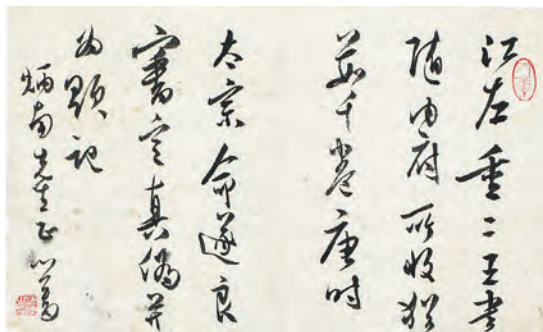 江左重二王書
隨内府所收猶
千卷唐時
太宗命遂良
審定真偽并
為題記
炳南先生正 心畬